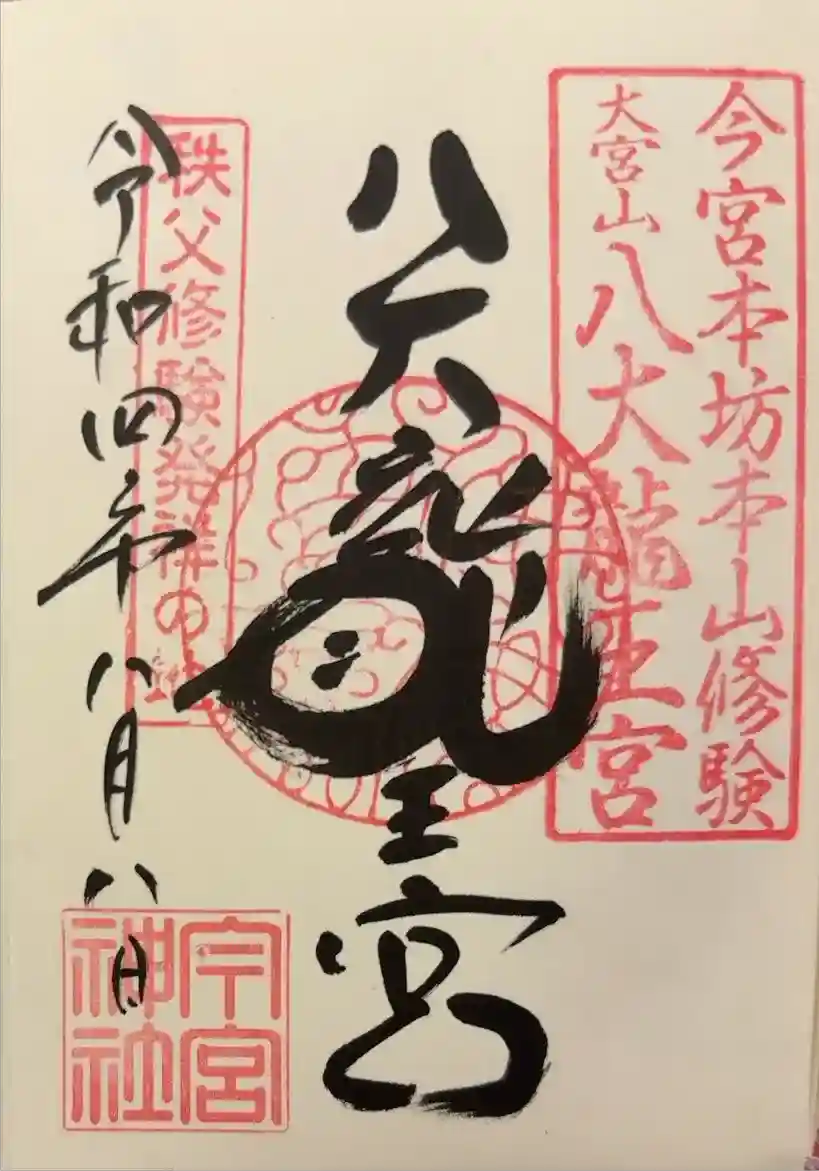 今宮本坊本山修験
大宮山八大龍王宮
八大龍王宮
秩父修験発祥の地
令和四年八月八日
今宮
神社